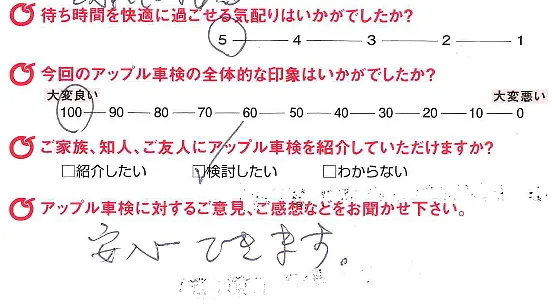 待ち時間を快適に過ごせる気配りはいかがでしたか?
5 — 4 — 3 — 2 — 1
今回のアップル車検の全体的な印象はいかがでしたか?
大変良い 大変悪い
100 — 90 — 80 — 70 — 60 — 50 — 40 — 30 — 20 — 10 — 0
ご家族、知人、ご友人にアップル車検を紹介していただけますか?
□紹介したい ☑検討したい □わからない
アップル車検に対するご意見、ご感想などをお聞かせ下さい。
安心できます。